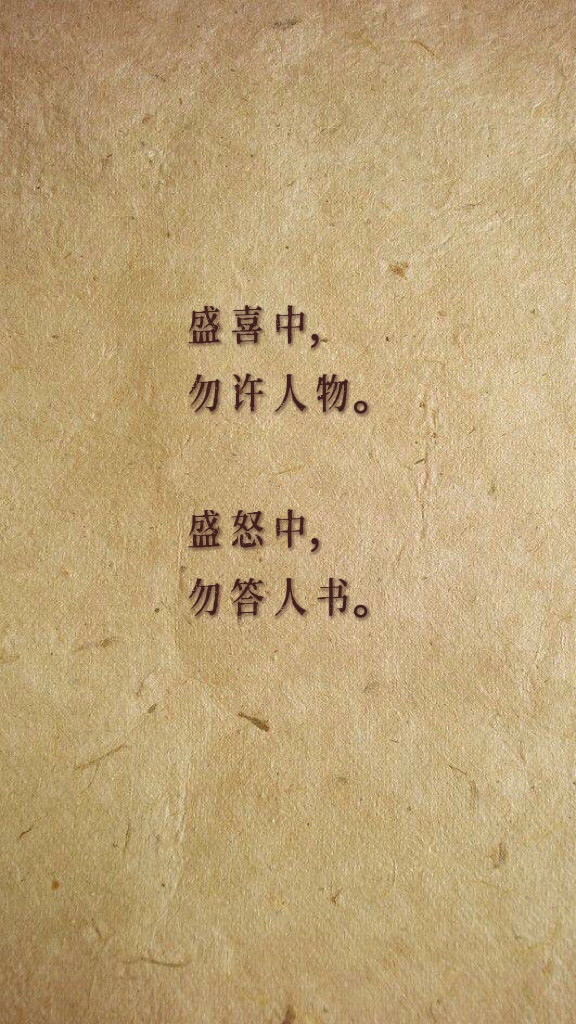 盛喜中，
勿许人物。
盛怒中，
勿答人书。